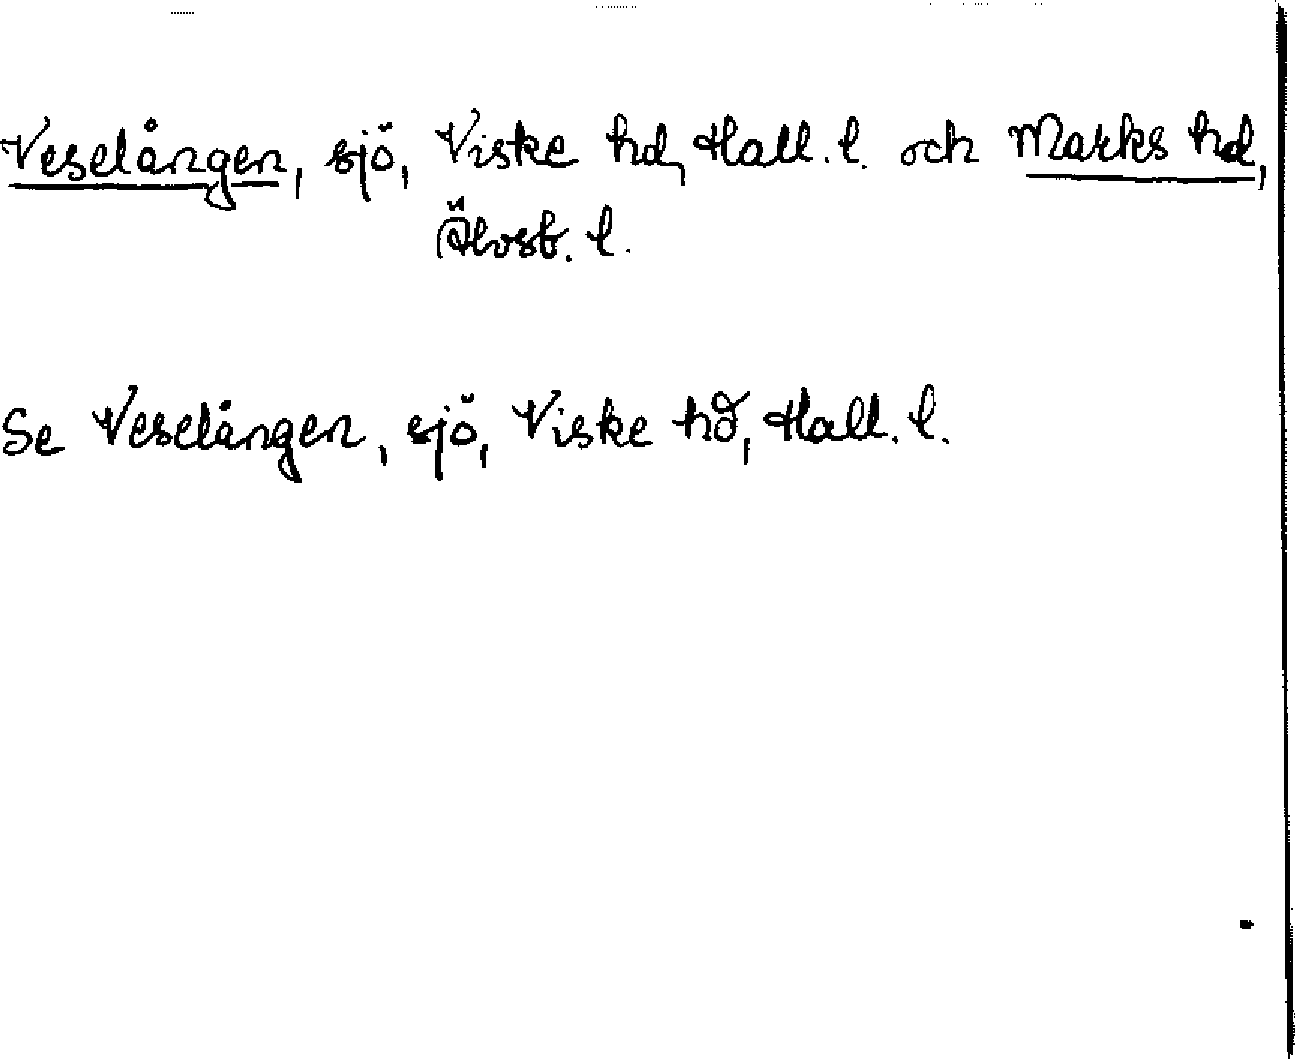 Veselången, sjö, Viske hd, Hall. l. och Marks hd,
Älvsb. l.
Se Veselången, sjö, Viske hd, Hall. l.